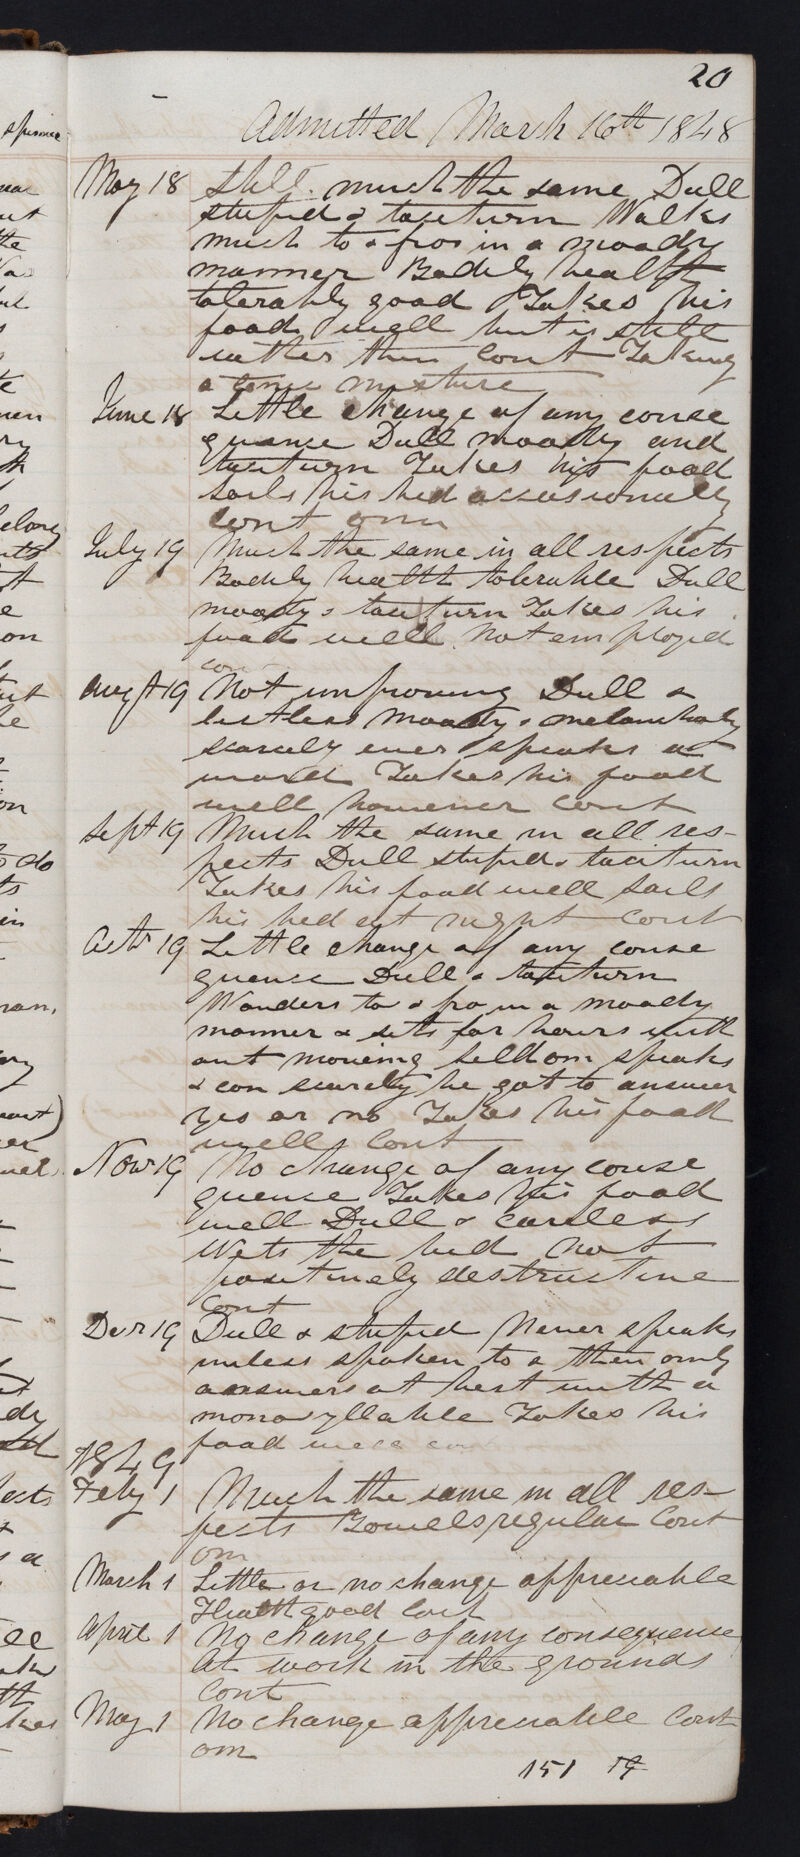 20
Admitted March 16th 1848
May 18 Still much the same Dull
stupid & taciturn Walks
much to & fro in a moody
manner Bodily health
tolerably good Takes his
food well but is still
rather thin Cont Taking
a tonic mixture
June 18 Little change of any conse
quence Dull moody and
taciturn Takes his food
soils his bed occasionally
Cont om
July 19 Much the same in all respects
Bodily health tolerable Dull
moody & taciturn Takes his
food well Not employed
con
Augst 19 Not improving Dull &
listless Moody & melancholy
scarcely ever speaks a
word Takes his food
well however Cont
Sept 19 Much the same in all res-
pects Dull stupid & taciturn
Takes his food well soils
his bed at night Cont
Octr 19 Little change of any conse
quence Dull & taciturn
Wanders to & fro in a moody
manner & sits for hours with
out moving seldom speaks
& can scarcely be got to answer
yes or no Takes his food
well Cont
Novr 19 No change of any conse
quence Takes his food
well Dull & careless
Wets the bed Not
positively destructive
Cont
Decr 19 Dull & stupid Never speaks
unless spoken to & then only
answers at best with a
monosyllable Takes his
food well cont
1849
Feby 1 Much the same in all res-
pects Bowels regular Cont
om
March 1 Little or no change appreciable
Health good Cont
April 1 No change of any consequence
At work in the grounds
Cont
May 1 No change appreciable Cont
om
151
spience
the
te
men
ry
elong
on
he
on
to do
ts
in
ran,
ny
er
dy
ects
s a
th